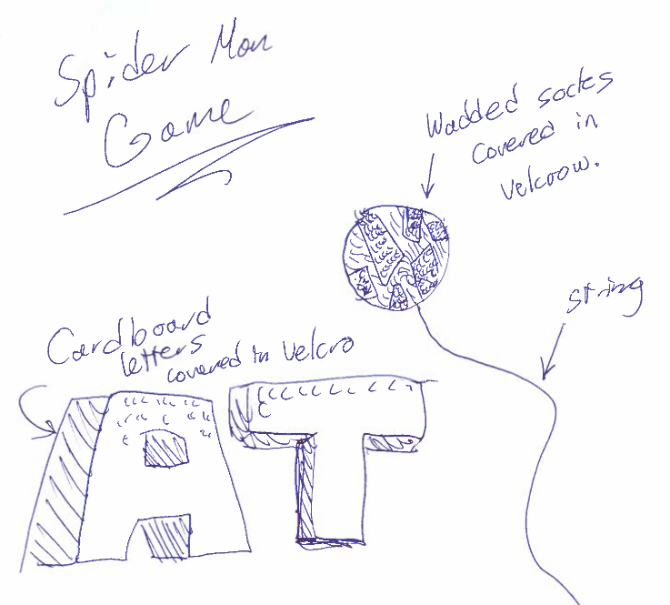 Spider Man
Game
Wadded socks
covered in
velcrow.
string
Cardboard
letters
covered in velcro
A T